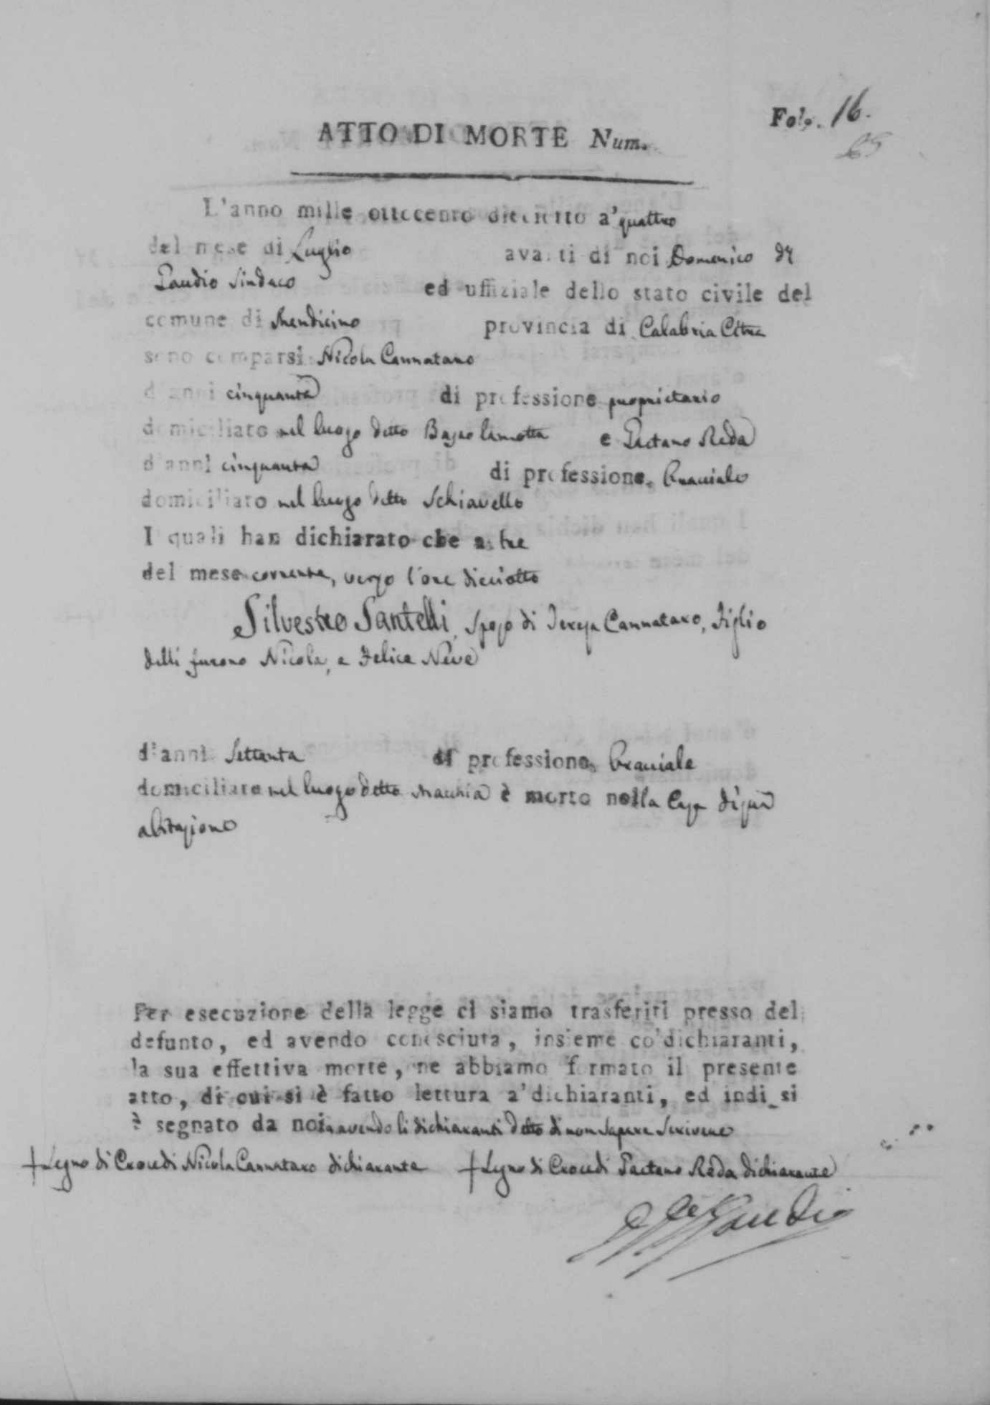 Fol. 16.
ATTO DI MORTE Num.
L'anno mille ottocento dieciotto a' quattro
del mese di Luglio avanti di noi Domenico de
Gaudio Sindaco ed uffiziale dello stato civile del
comune di Mendicino provincia di Calabria Citra
sono comparsi Nicola Cannataro
d'anni cinquanta di professione proprietario
domiciliato nel luogo detto e Gaetano Reda
d'anni cinquanta di professione Bracciale
domiciliato nel luogo detto Schiavello
I quali han dichiarato che a tre
del mese corrente, verso l'ore dieciotto
Silvestro Santelli, sposo di Teresa Cannataro, Figlio
delli furono Nicola, e Felice Neve
d'anni Settanta di professione Bracciale
domiciliato nel luogo detto Macchia è morto nella Casa di sua
abitazione
Per esecuzione della legge ci siamo trasferiti presso del
defunto, ed avendo conosciuta, insieme co' dichiaranti,
la sua effettiva morte, ne abbiamo formato il presente
atto, di cui si è fatto lettura a' dichiaranti, ed indi si
è segnato da noi avendo li dichiaranti detto di non sapere scrivere
† Segno di Croce di Nicola Cannataro dichiarante † Segno di Croce di Gaetano Reda dichiarante
de Gaudio